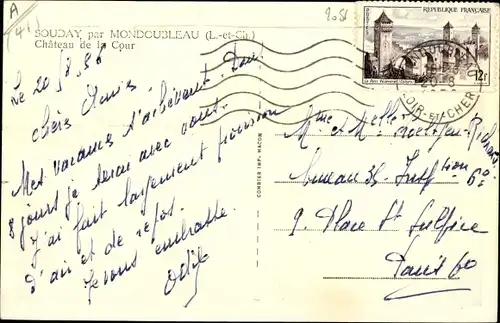 A
(41)
2051
SOUDAY par MONDOUBLEAU (L.-et-Ch.)
Château de la Cour
Le 20/8/56
Chers Amis,
Mes vacances s'achèvent. Dans
8 jours je serai avec vous.
J'ai fait largement provision
d'air et de repos.
Je vous embrasse
Odile
COMBIER IMP. MACON
REPUBLIQUE FRANÇAISE
12F
LOIR-ET-CHER
Mme et Melle
Bureau 35
9. Place St Sulpice
Paris 6e